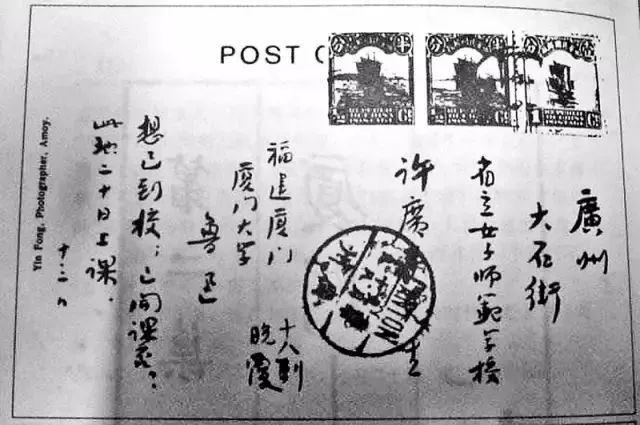 POST C
廣州
大石街
省立女子師範學校
許廣 生
福建厦门
厦门大学
魯迅
十八到
晚覆
想已到校；已開課否？
此地二十日上課．
十三日
Yin Fong, Photographer, Amoy.
CANTON